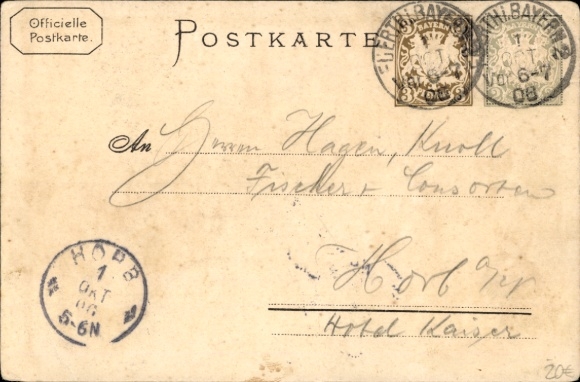 Officielle
Postkarte.
POSTKARTE
FUERTH.BAYERN.2
1
OKT
Vor. 6-7
06
FUERTH.BAYERN.2
1
OKT
Vor. 6-7
06
3
An Herren Hagen, Knoll
Fischer + Consorten
Horb a/N
Hotel Kaiser
HORB
1
OKT
06
5-6N
20€